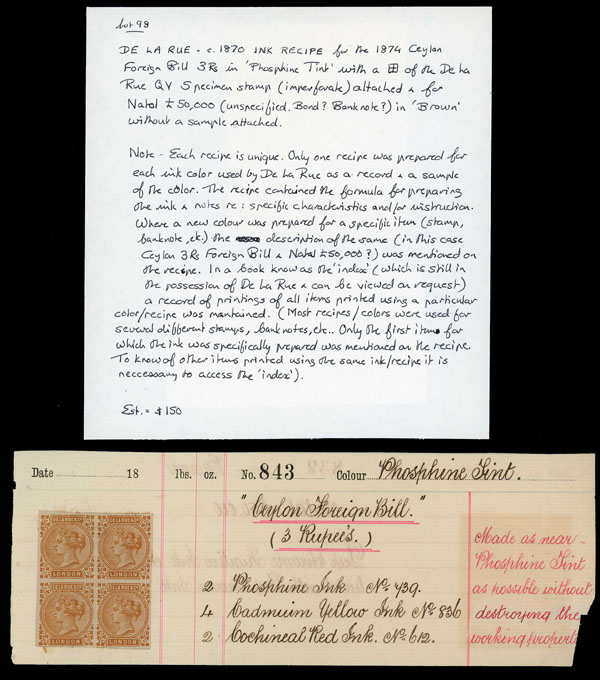 Lot 98
DE LA RUE - c. 1870 INK RECIPE for the 1874 Ceylon
Foreign Bill 3Rs in 'Phosphine Tint' with a 田 of the De La
Rue QV Specimen stamp (imperforate) attached & for
Natal £50,000 (unspecified. Bond? Banknote?) in 'Brown'
without a sample attached.
Note - Each recipe is unique. Only one recipe was prepared for
each ink color used by De La Rue as a record & a sample
of the color. The recipe contained the formula for preparing
the ink & notes re: specific characteristics and/or instruction.
Where a new colour was prepared for a specific item (stamp,
banknote, etc.) the description of the same (in this case
Ceylon 3Rs Foreign Bill & Natal £50,000?) was mentioned on
the recipe. In a book know as the 'index' (which is still in
the possession of De La Rue & can be viewed on request)
a record of printings of all items printed using a particular
color/recipe was maintained. (Most recipes/colors were used for
several different stamps, banknotes, etc.. Only the first item for
which the ink was specifically prepared was mentioned on the recipe.
To know of other items printed using the same ink/recipe it is
neccessary to access the 'index').
Est. = $150
Date 18 lbs. oz. No. 843 Colour Phosphine Tint.
"Ceylon Foreign Bill."
(3 Rupee's.)
DE LA RUE & CO. DE LA RUE & CO.
LONDON LONDON
DE LA RUE & CO. DE LA RUE & CO.
LONDON LONDON
2 Phosphine Ink No. 439.
4 Cadmium Yellow Ink No. 836
2 Cochineal Red Ink. No. 612.
Made as near
Phosphine Tint
as possible without
destroying the
working propert